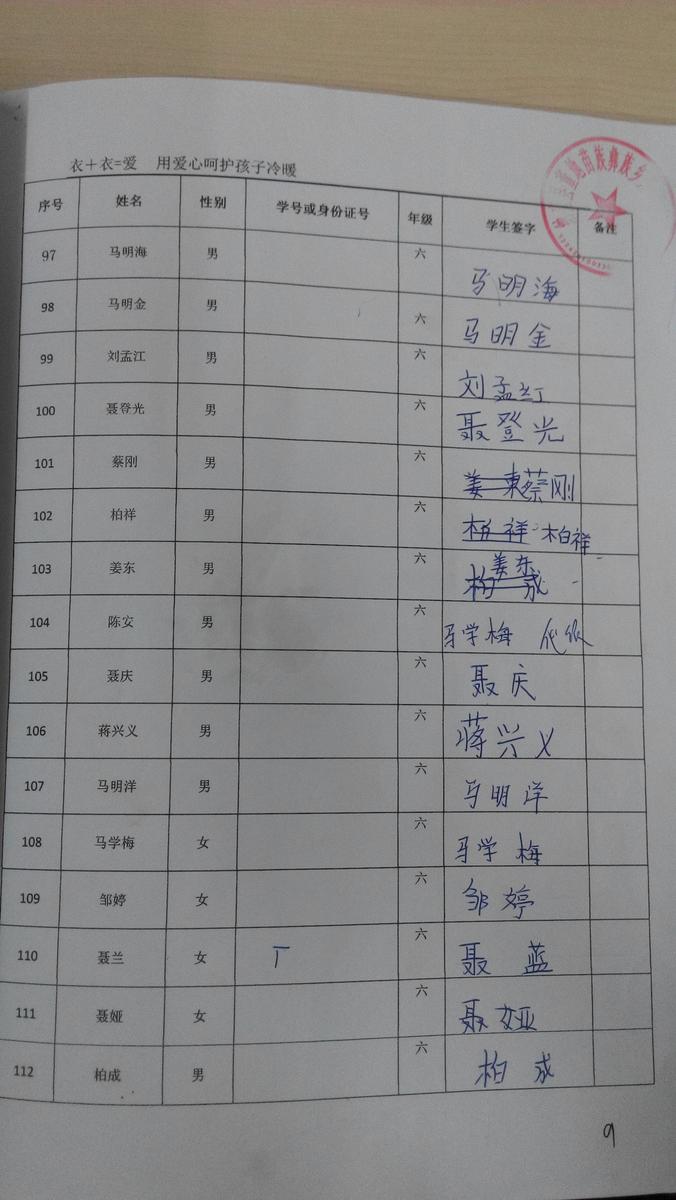 衣+衣=爱 用爱心呵护孩子冷暖
苗族彝族乡
序号 姓名 性别 学号或身份证号 年级 学生签字 备注
97 马明海 男 六 马明海
98 马明金 男 六 马明金
99 刘孟江 男 六 刘孟江
100 聂登光 男 六 聂登光
101 蔡刚 男 六 姜东蔡刚
102 柏祥 男 六 柏祥 柏祥
103 姜东 男 六 柏成 姜东
104 陈安 男 六 马学梅 代领
105 聂庆 男 六 聂庆
106 蒋兴义 男 六 蒋兴义
107 马明洋 男 六 马明洋
108 马学梅 女 六 马学梅
109 邹婷 女 六 邹婷
110 聂兰 女 六 聂蓝
111 聂娅 女 六 聂娅
112 柏成 男 六 柏成
9